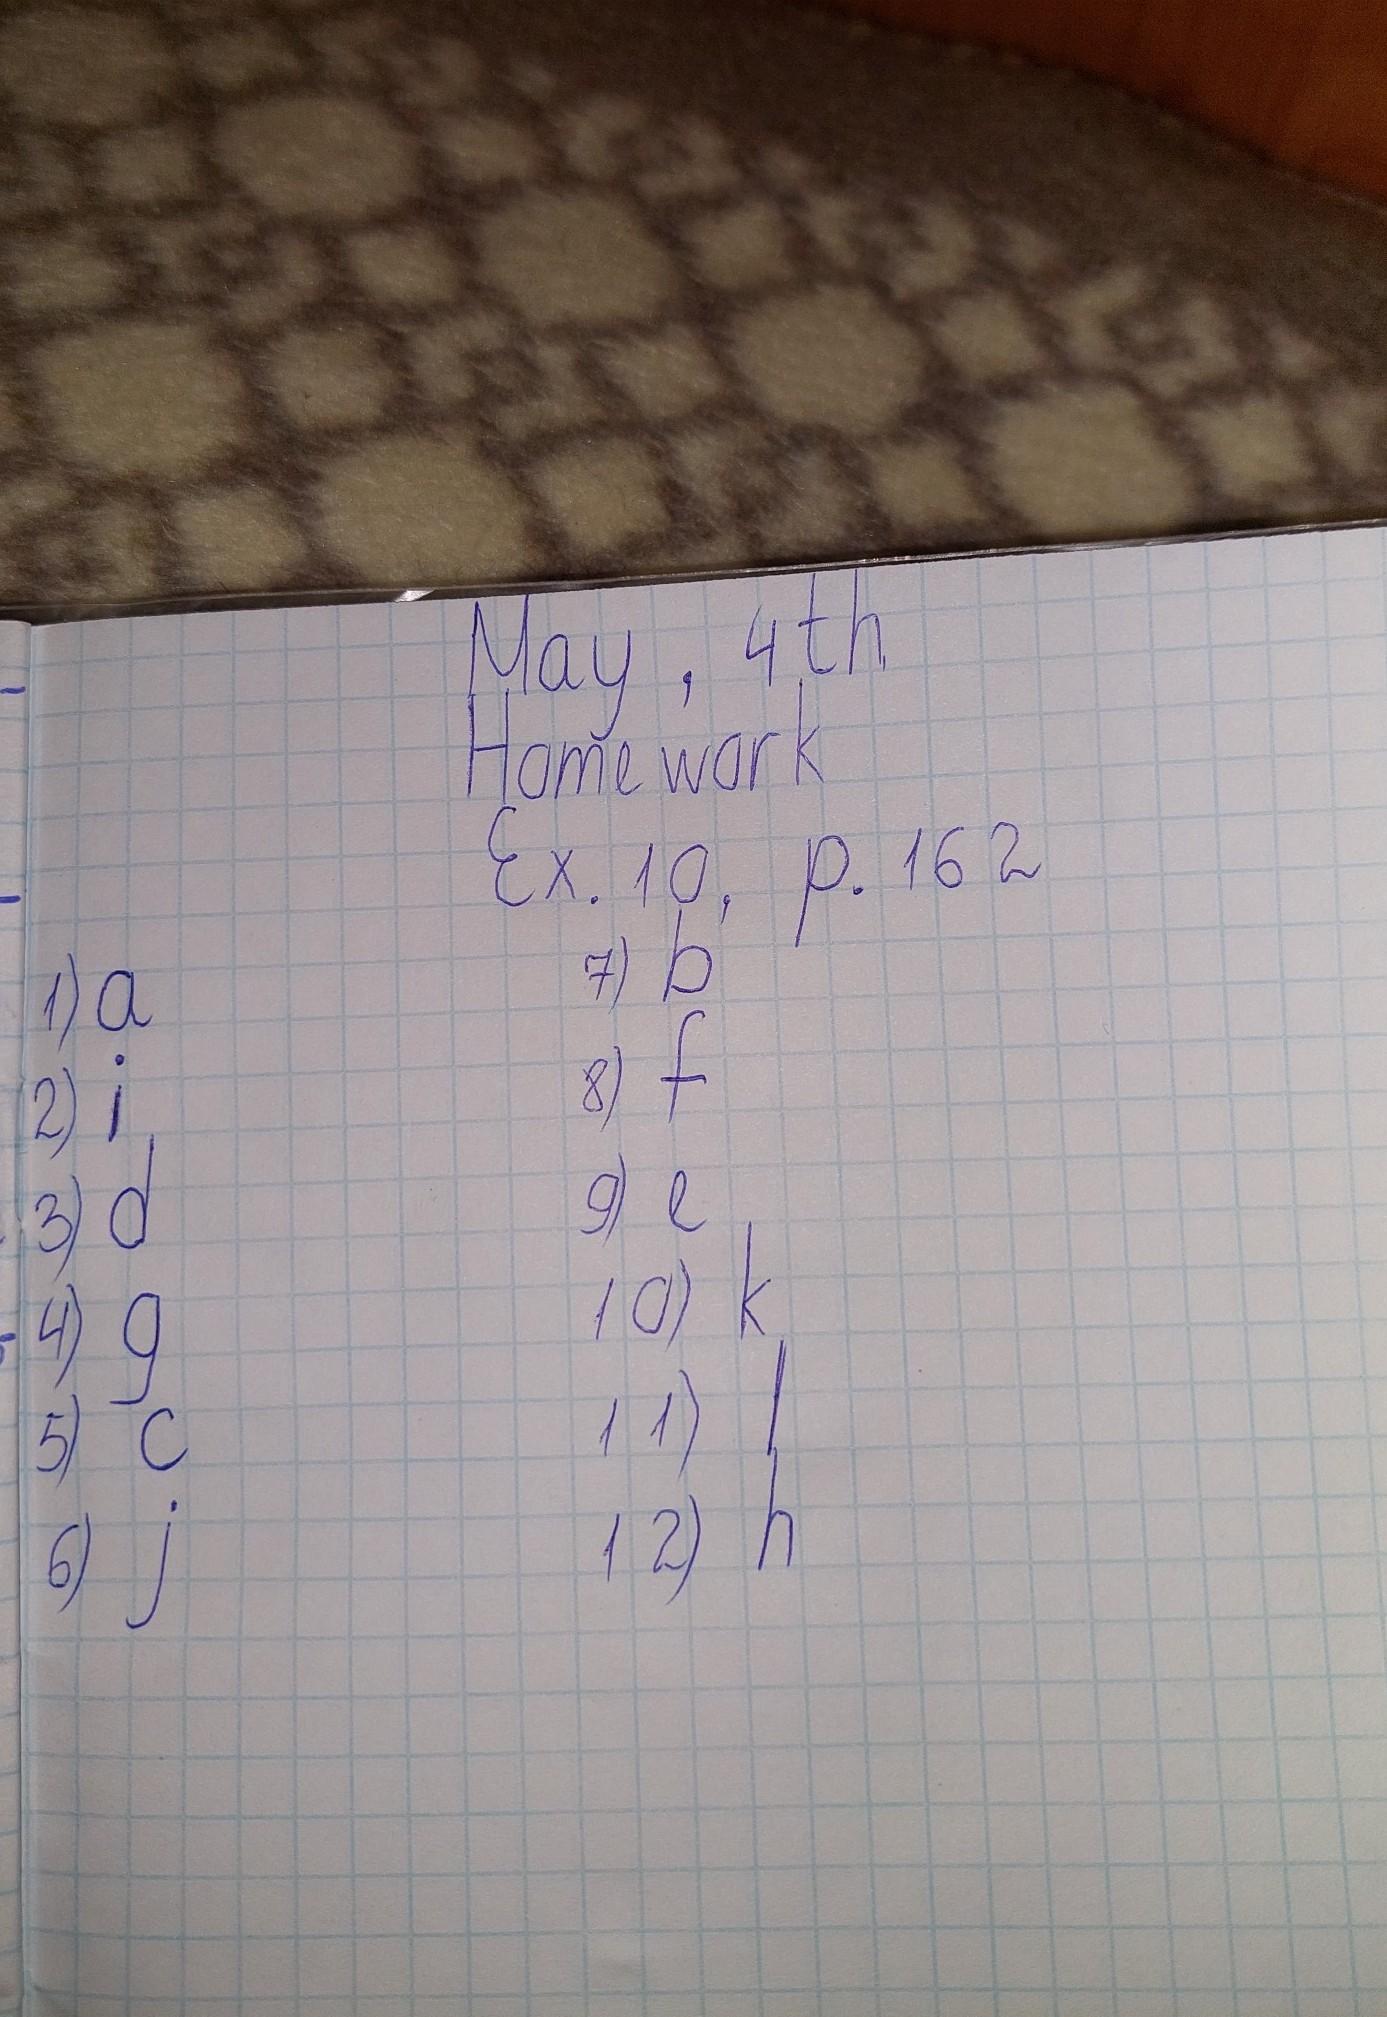 May, 4th
Homework
Ex. 10, p. 162
1) a
2) i
3) d
4) g
5) c
6) j
7) b
8) f
9) e
10) k
11) l
12) h